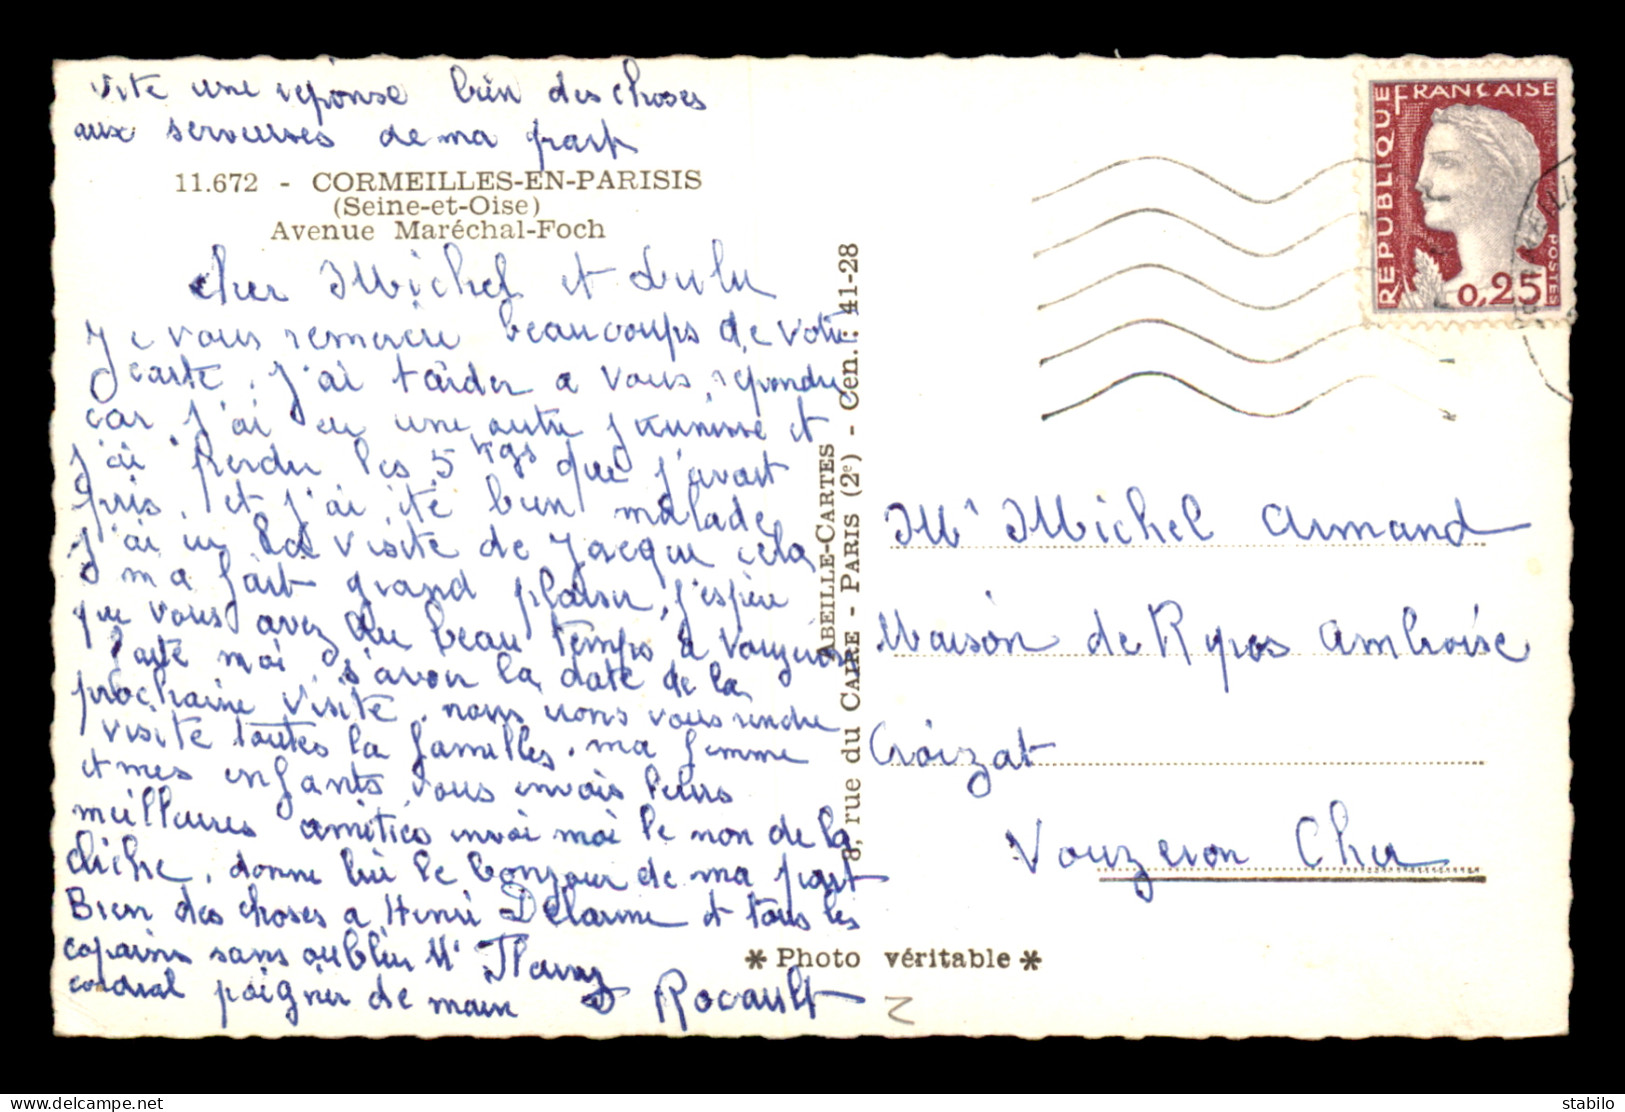 vite une réponse bien des choses
aux serveuses de ma part
11.672 - CORMEILLES-EN-PARISIS
(Seine-et-Oise)
Avenue Maréchal-Foch
Cher Michel et Lulu
Je vous remercie beaucoups de votre
carte, J'ai tarder a vous répondre
car J'ai eu une autre
J'ai Perdu les 5 kgs que j'avait
pris, et j'ai été bien malade
J'ai eu la visite de Jacque cela
m'a fait grand plaisir, j'espère
que vous avez du beau temps a Vouzeron
faite moi s'avoir la date de la
prochaine visite, nous irons vous rendre
visite toutes la familles. ma femme
et mes enfants vous envois leurs
meilleures amitiés envoi moi le non de la
, donne lui le bonjour de ma part
Bien des choses a Henri Delarme et tous les
copains sans oublier Mr
cordial poigner de main Rocault
ABEILLE-CARTES
8, rue du CAIRE - PARIS (2e) - Cen. : 41-28
* Photo véritable *
REPUBLIQUE FRANÇAISE
POSTES
0,25
Mr Michel Armand
Maison de Repos Ambroise
Croizat
Vouzeron Cher
2
https://www.delcampe.net
stabilo